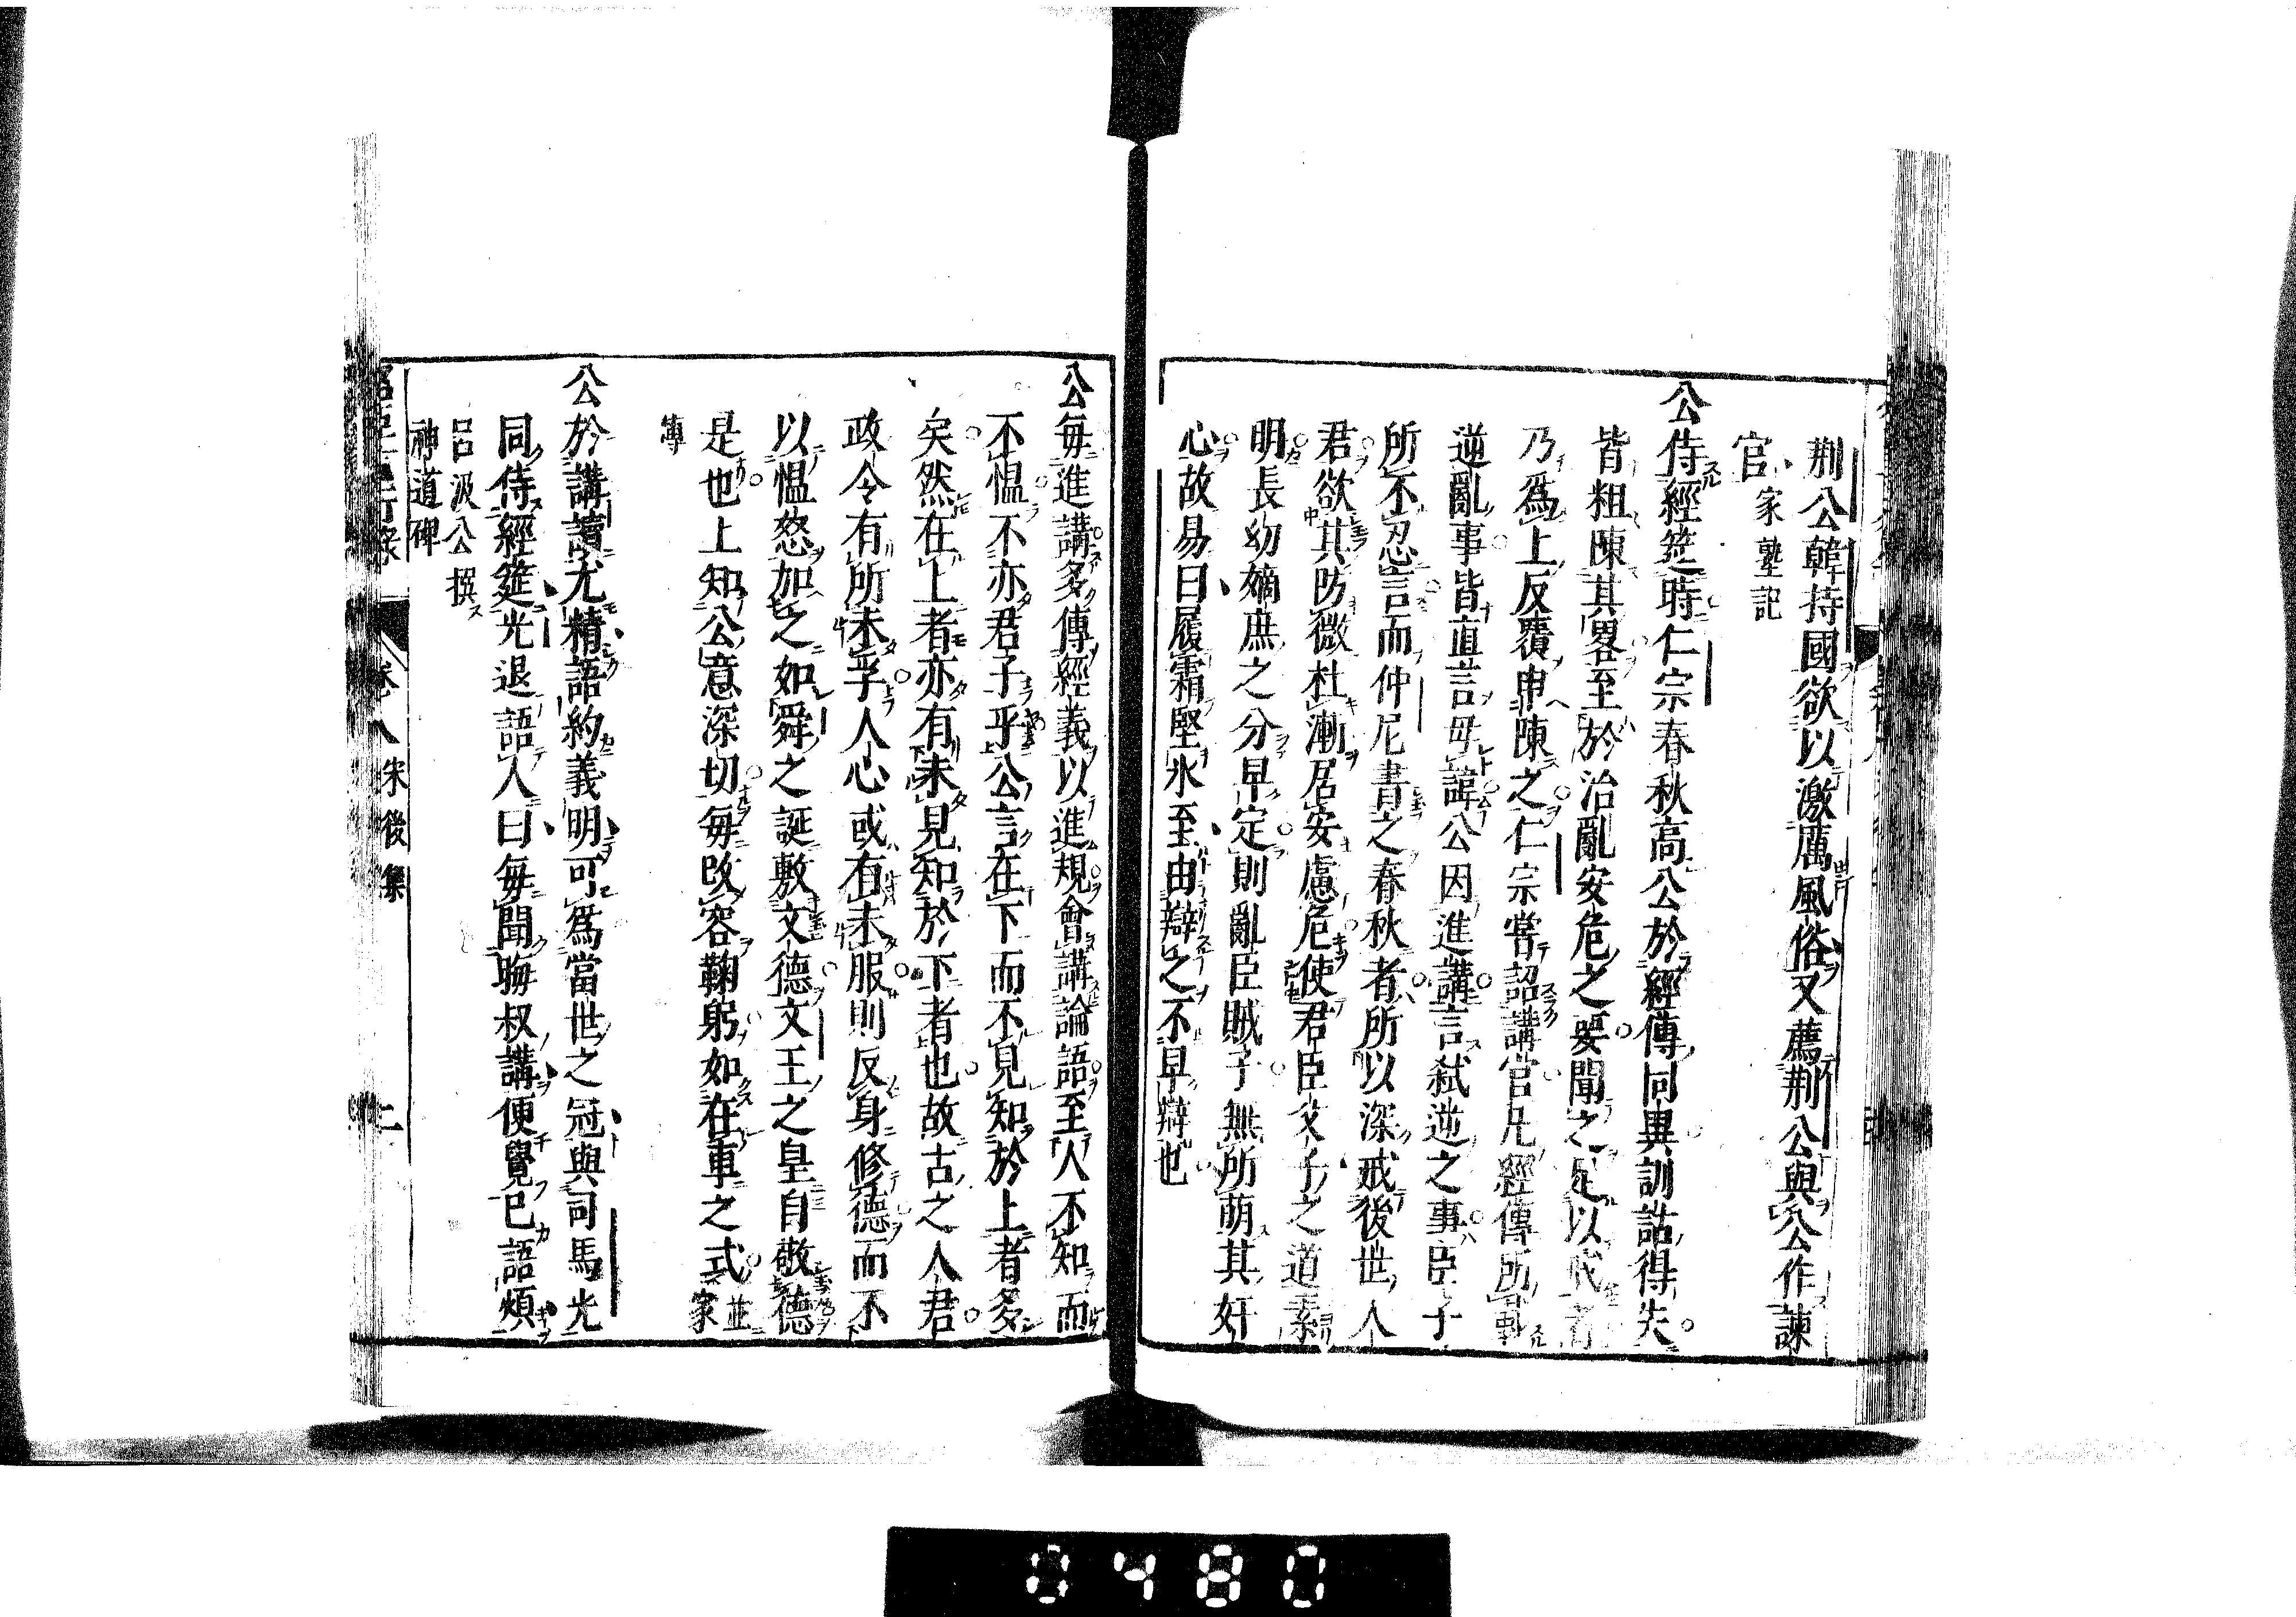 荆公韓持國欲以激厲風俗又薦荆公與公作諫
官家塾記
公侍經筵時仁宗春秋高公於經傳同異訓詁得失
皆粗陳其畧至於治亂安危之要聞之足以戒者
乃爲上反覆申陳之仁宗嘗詔講官凡經傳所載
逆亂事皆直言毋諱公因進講言弑逆之事臣子
所不忍言而仲尼書之春秋者所以深戒後世人
君欲其防微杜漸居安慮危使君臣父子之道素
明長幼嫡庶之分早定則亂臣賊子無所萌其奸
心故易曰履霜堅氷至由辯之不早辯也
公每進講多傳經義以進規會講論語至人不知而
不慍不亦君子乎公言在下而不見知於上者多
矣然在上者亦有未見知於下者也故古之人君
政令有所未孚人心或有未服則反身修德而不
以慍怒加之如舜之誕敷文德文王之皇自敬德
是也上知公意深切每改容鞠躬如在車之式並家
傳
公於講讀尤精語約義明可爲當世之冠與司馬光
同侍經筵光退語人曰每聞晦叔講便覺已語煩
呂汲公撰
神道碑
卷八 宋後集 二
0480